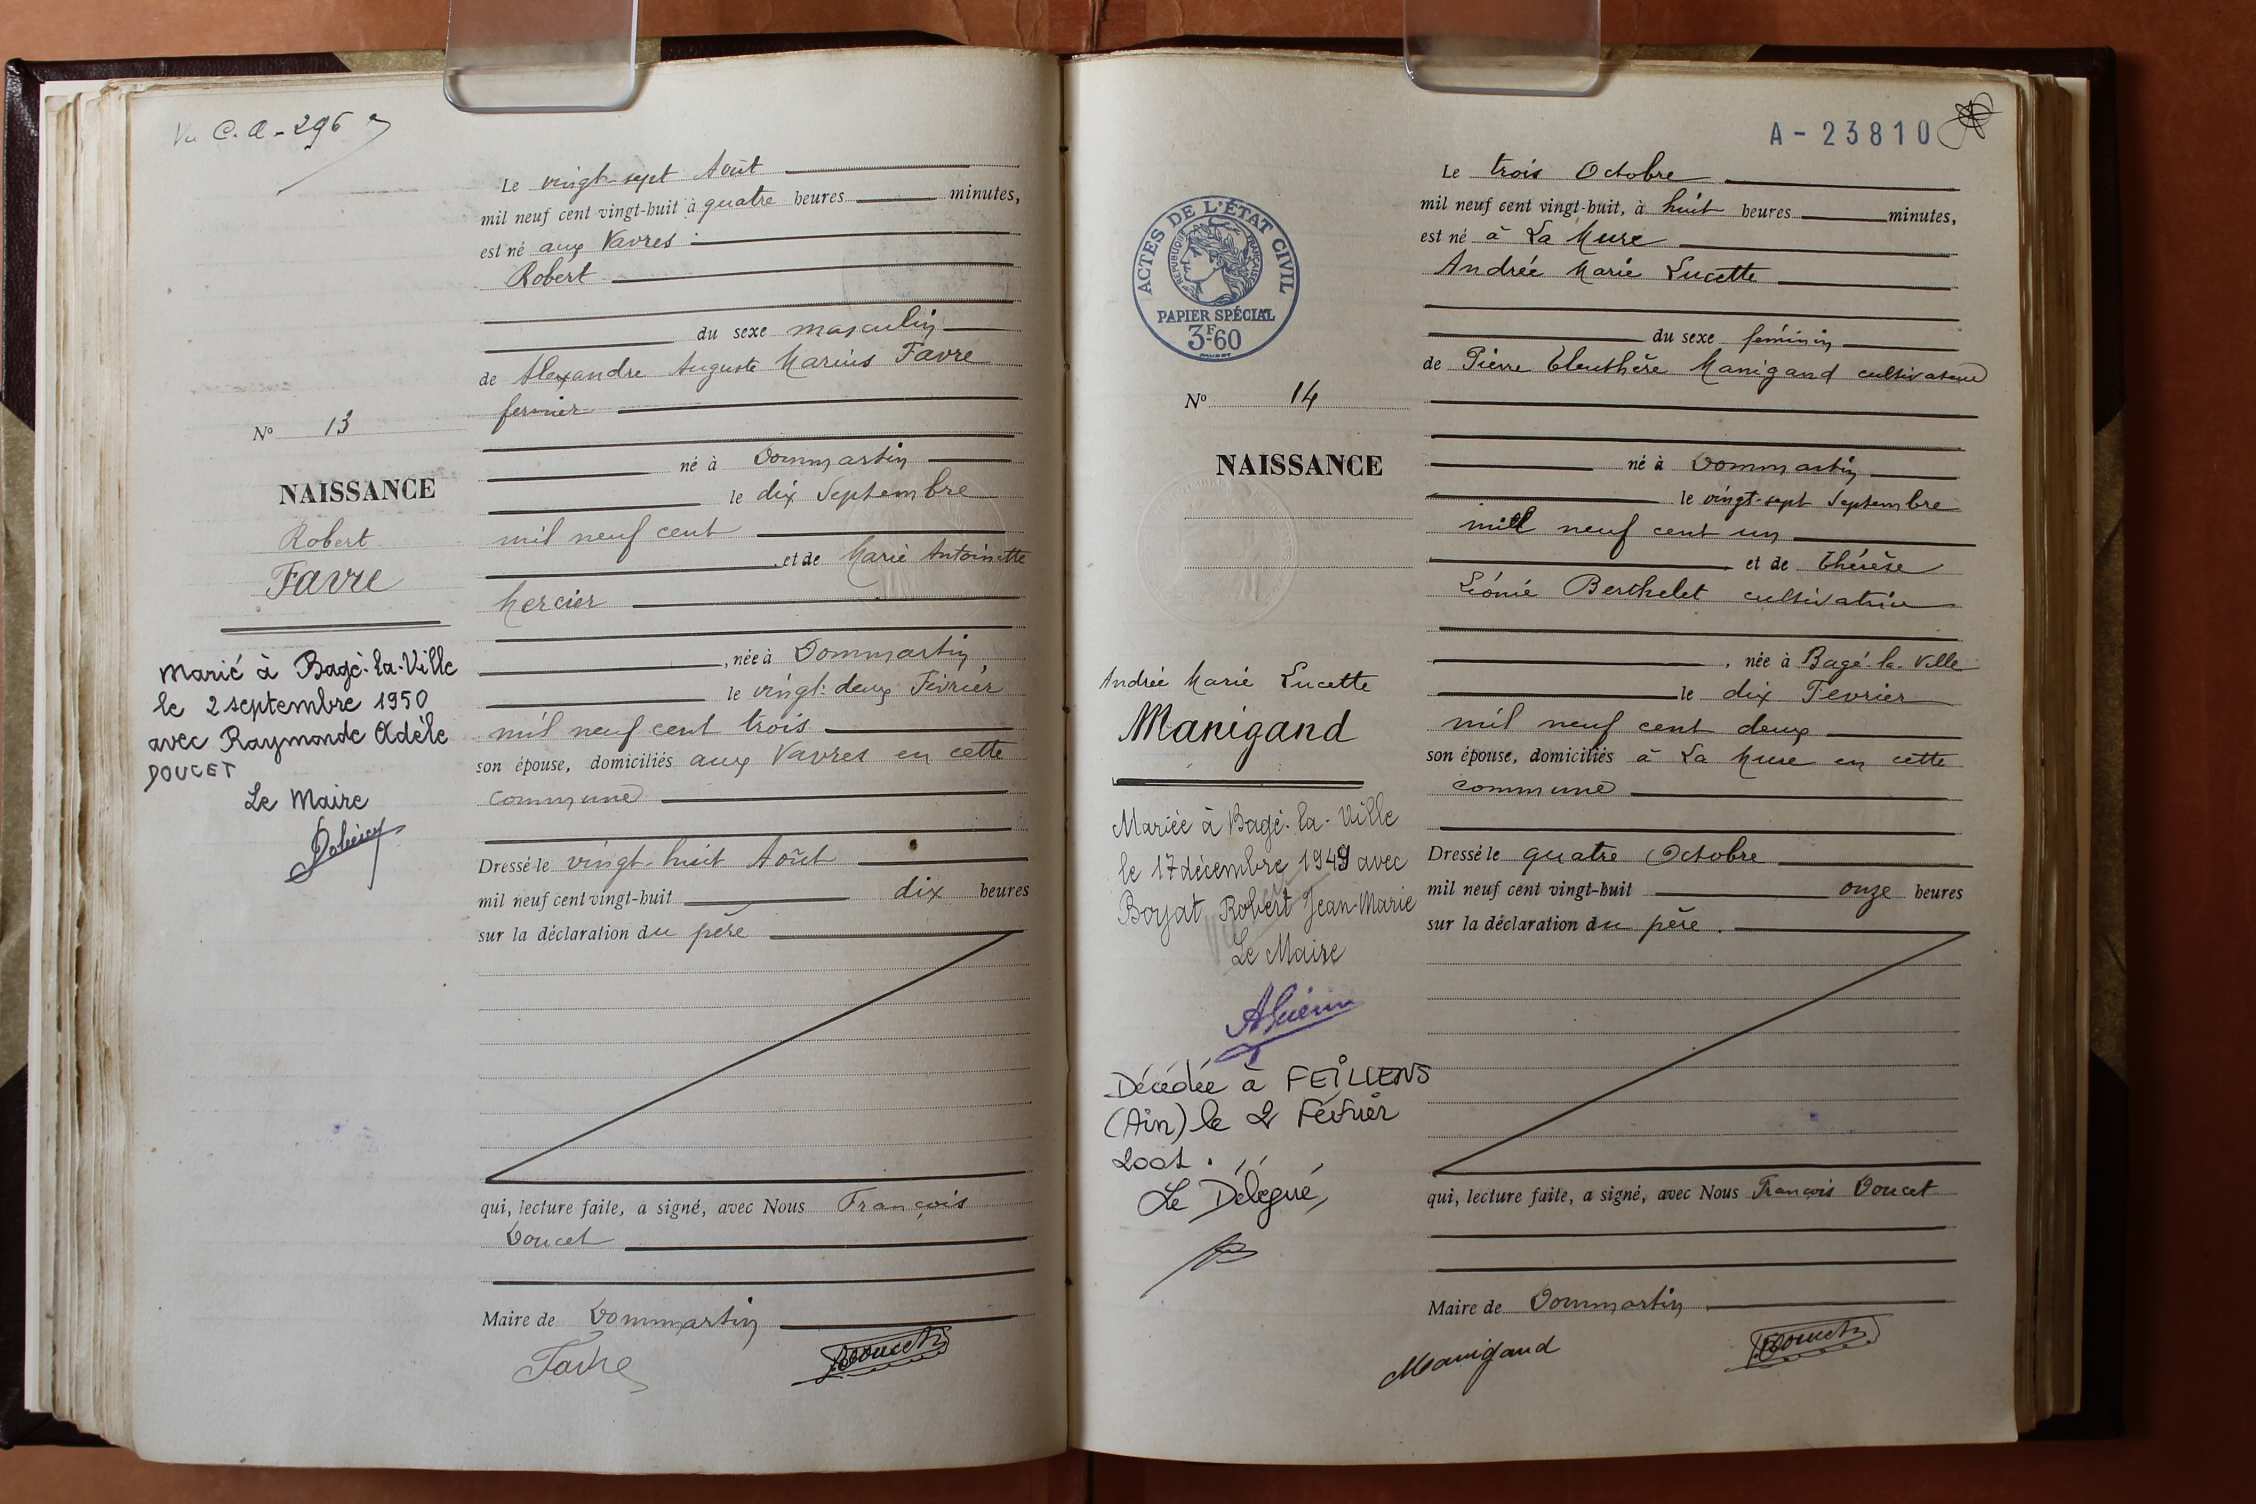 Vu C.A - 296
Le vingt-sept Août
mil neuf cent vingt-huit à quatre heures minutes,
est né aux Vavres
Robert
du sexe masculin
de Alexandre Auguste Marius Favre
fermier
né à Dommartin
le dix Septembre
mil neuf cent
et de Marie Antoinette
Mercier
, née à Dommartin
le vingt-deux Février
mil neuf cent trois
son épouse, domiciliés aux Vavres en cette
commune
Dressé le vingt-huit Août
mil neuf cent vingt-huit dix heures
sur la déclaration du père
qui, lecture faite, a signé, avec Nous François
Doucet
Maire de Dommartin
Favre
Doucet
No 13
NAISSANCE
Robert
Favre
Marié à Bagé-la-Ville
le 2 septembre 1950
avec Raymonde Adèle
DOUCET
Le Maire
A-23810
ACTES DE L'ÉTAT CIVIL
RÉPUBLIQUE FRANÇAISE
PAPIER SPÉCIAL
3F-60
No 14
NAISSANCE
Andrée Marie Lucette
Manigand
Mariée à Bagé-la-Ville
le 17 décembre 1949 avec
Boyat Robert Jean-Marie
Le Maire
AGuérin
Décédée à FEILLENS
(Ain) le 2 Février
2001.
Le Délégué,
Le trois Octobre
mil neuf cent vingt-huit, à huit heures minutes,
est né à La Mure
Andrée Marie Lucette
du sexe féminin
de Pierre Eleuthère Manigand cultivateur
né à Dommartin
le vingt-sept Septembre
mil neuf cent un
et de Thérèse
Léonie Berthelet cultivatrice
, née à Bagé-la-Ville
le dix Fevrier
mil neuf cent deux
son épouse, domiciliés à La Mure en cette
commune
Dressé le quatre Octobre
mil neuf cent vingt-huit onze heures
sur la déclaration du père.
qui, lecture faite, a signé, avec Nous François Doucet
Maire de Dommartin
Manigand
Doucet